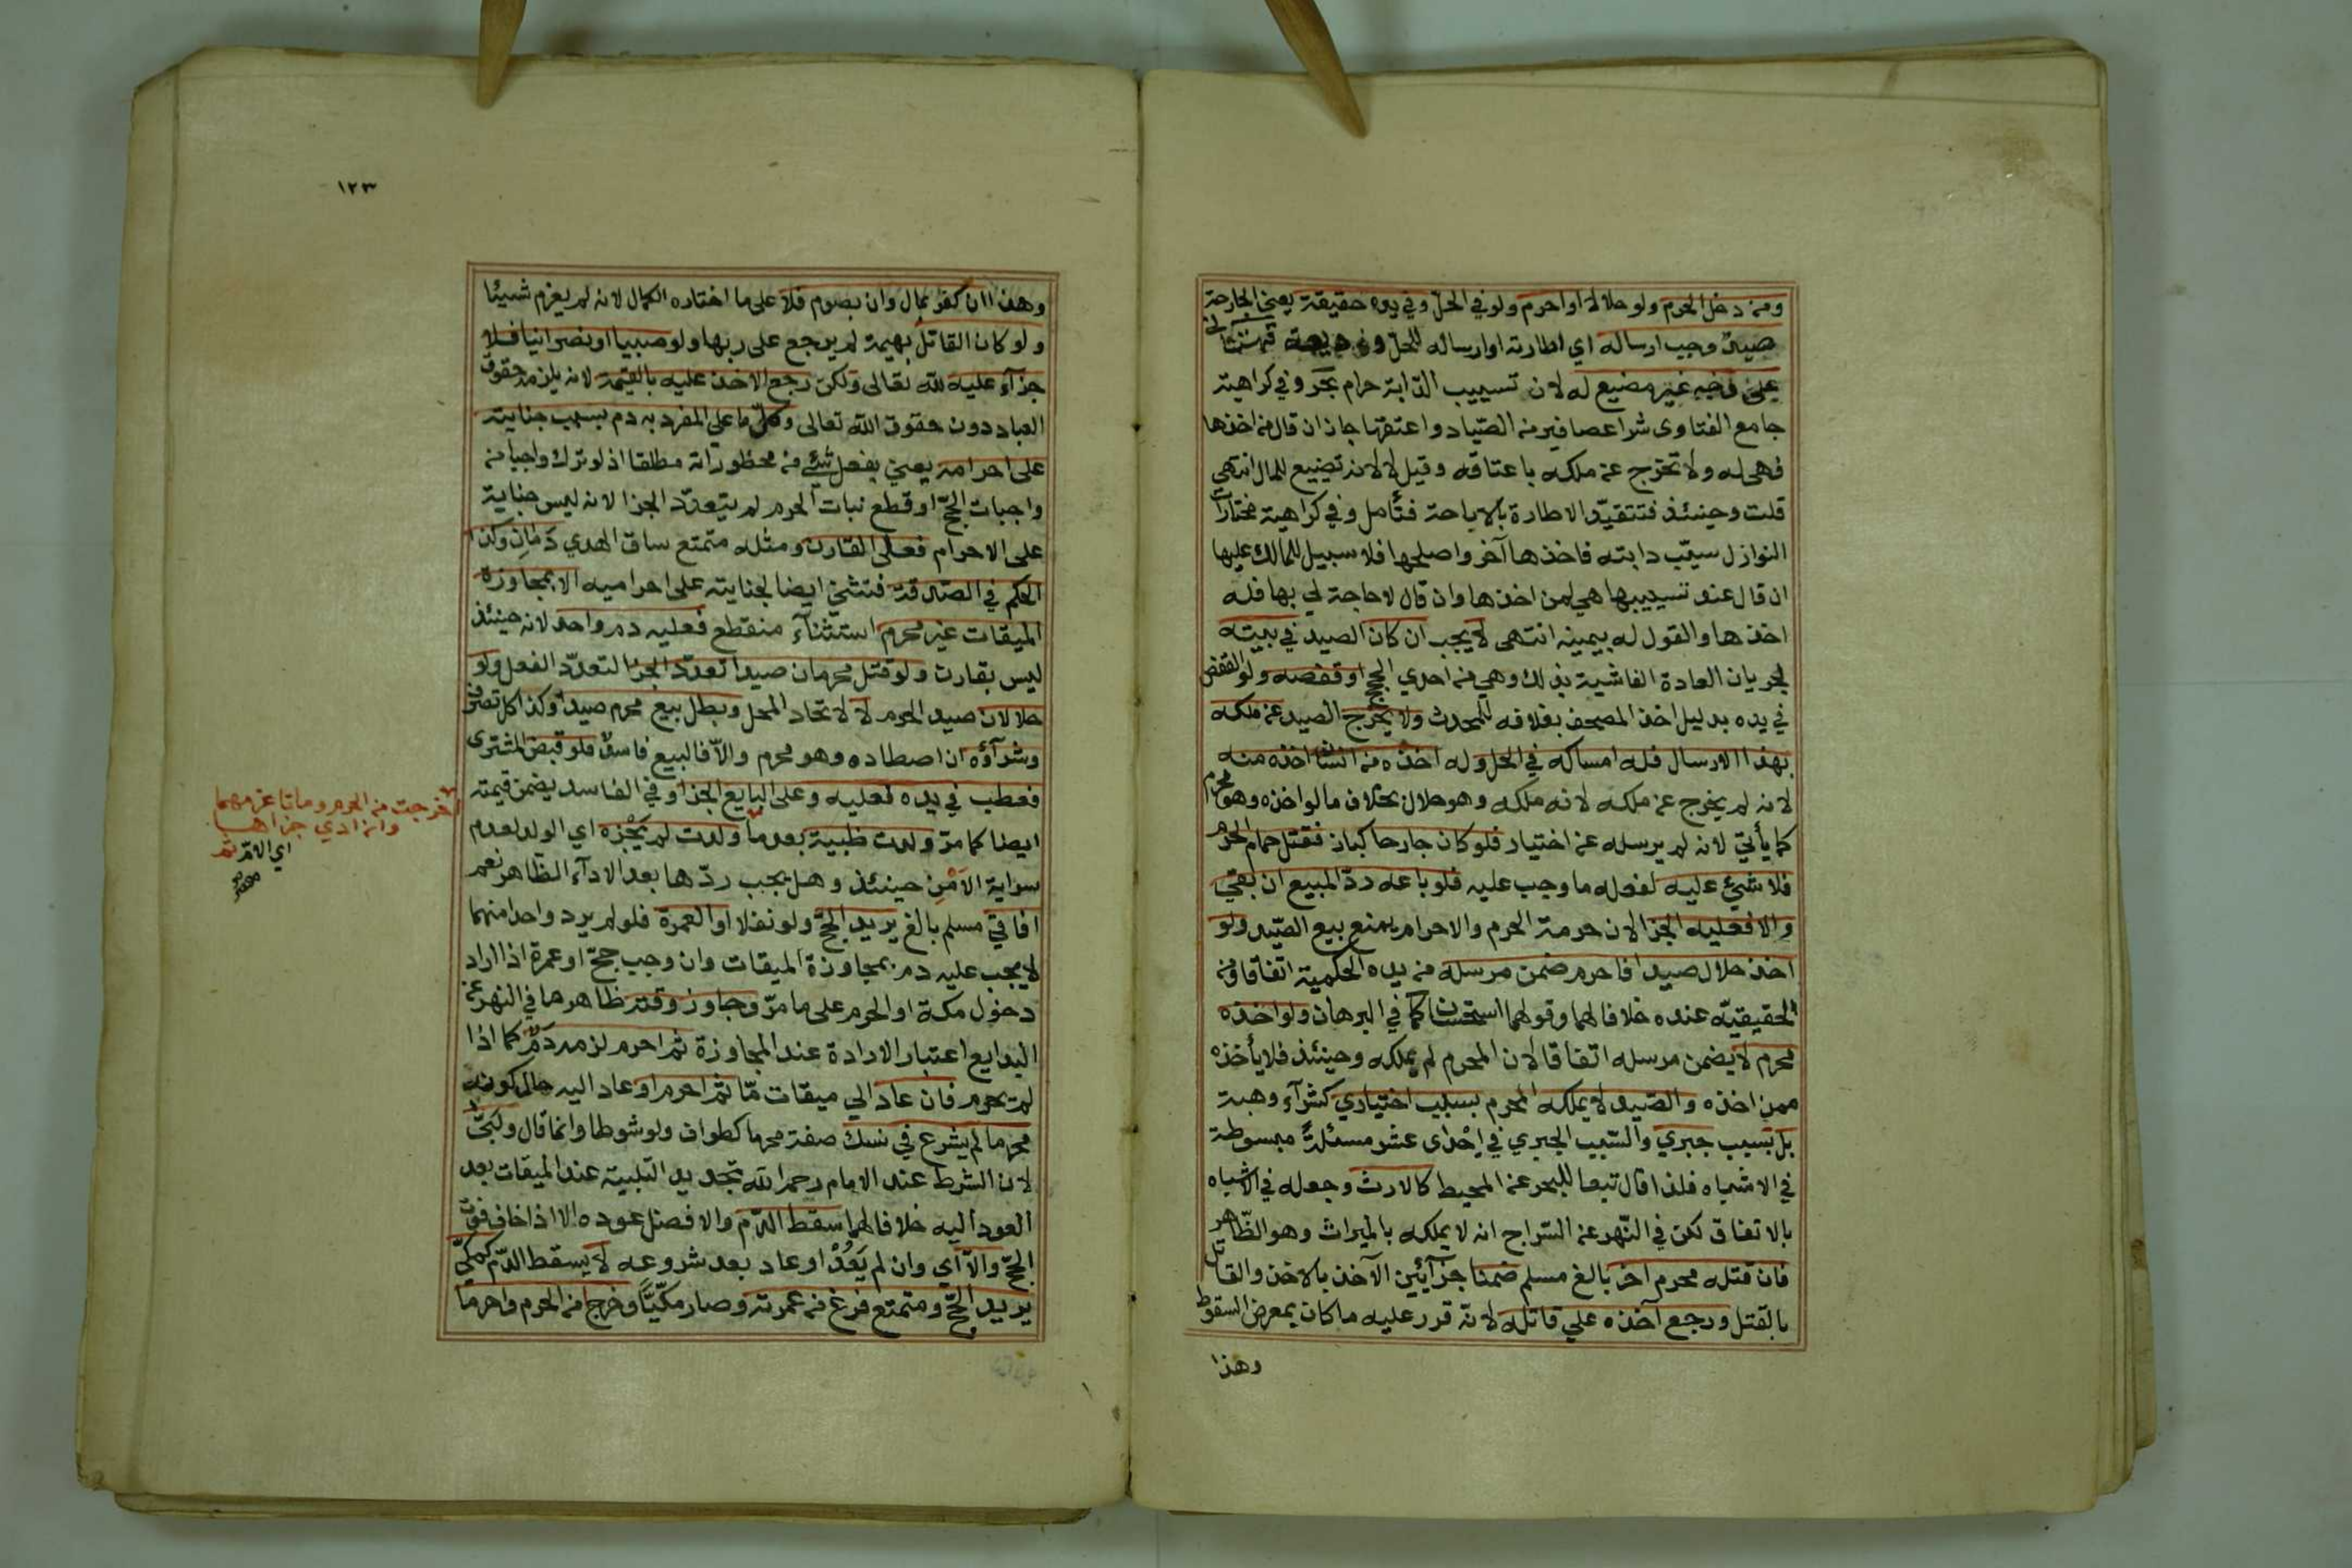 ومن دخل الحرم ولو حلالا او احرم ولو في الحل وفي يده حقيقة يعني الجارحة
صيد وجب ارساله اي اطارته او ارساله للحل وديعة قهستاني
على وجه غير مضيع له لان تسييب الدابة حرام بحر وفي كراهية
جامع الفتاوى شرا عصافير من الصياد واعتقها جاز ان قال من اخذها
فهي له ولا تخرج عن ملكه باعتاقه وقيل لا لانه تضييع للمال انتهى
قلت وحينئذ فتتقيد الاطارة بالاباحة فتأمل وفي كراهية مختارات
النوازل سيب دابته فاخذها آخر واصلحها فلا سبيل للمالك عليها
ان قال عند تسييبها هي لمن اخذها وان قال لا حاجة لي بها فله
اخذها والقول له بيمينه انتهى لا يجب ان كان الصيد في بيته
لجريان العادة الفاشية بذلك وهي من احدي الحجج او قفصه ولو القفص
في يده بدليل اخذ المصحف بغلافه للمحدث ولا يخرج الصيد عن ملكه
بهذا الارسال فله امساكه في الحل وله اخذه من انسان اخذه منه
لانه لم يخرج عن ملكه لانه ملكه وهو حلال بخلاف ما لو اخذه وهو محرم
كما يأتي لانه لم يرسله عن اختيار فلو كان جارحا كباز فقتل حمام الحرم
فلا شيئ عليه لفعله ما وجب عليه فلو باعه رد المبيع ان بقي
والا فعليه الجزا لان حرمة الحرم والاحرام يمنع بيع الصيد ولو
اخذ حلال صيدا فاحرم ضمن مرسله من يده الحكمية اتفاقا ومن
الحقيقية عنده خلافا لهما وقولهما استحسان كما في البرهان ولو اخذه
محرم لا يضمن مرسله اتفاقا لان المحرم لم يملكه وحينئذ فلا يأخذه
ممن اخذه والصيد لا يملكه المحرم بسبب اختياري كشرآء وهبة
بل بسبب جبري والسبب الجبري في احدى عشر مسئلة مبسوطة
في الاشباه فلذا قال تبعا للبحر عن المحيط كالارث وجعله في الاشباه
بالاتفاق لكن في النهر عن السراج انه لا يملكه بالميراث وهو الظاهر
فان قتله محرم اخر بالغ مسلم ضمنا جزآئين الآخذ بالاخذ والقاتل
بالقتل ورجع آخذه علي قاتله لانه قرر عليه ما كان بمعرض السقوط
وهذا
١٢٣
وهذا ان كفر بمال وان بصوم فلا على ما اختاره الكمال لانه لم يغرم شيئا
ولو كان القاتل بهيمة لم يرجع على ربها ولو صبيا او نصرانيا فلا
جزآء عليه لله تعالى ولكن رجع الاخذ عليه بالقيمة لانه يلزمه حقوق
العباد دون حقوق الله تعالى وكل ما على المفرد به دم بسبب جنايته
على احرامه يعني بفعل شيئ من محظوراته مطلقا اذ لو ترك واجبا من
واجبات الحج او قطع نبات الحرم لم يتعدد الجزا لانه ليس جناية
على الاحرام فعلى القارن ومثله متمتع ساق الهدي دمان وكذا
الحكم في الصدقة فتثنى ايضا لجنايته على احراميه الا بمجاوزة
الميقات غير محرم استثنآء منقطع فعليه دم واحد لانه حينئذ
ليس بقارن ولو قتل محرمان صيدا تعدد الجزا لتعدد الفعل ولو
حلالان صيد الحرم لا لاتحاد المحل وبطل بيع محرم صيدا وكذا كل تصرف
وشرآؤه ان اصطاده وهو محرم والا فالبيع فاسد فلو قبض المشترى
فعطب في يده فعليه وعلى البايع الجزا وفي الفاسد يضمن قيمته
ايضا كما مر ولدت ظبية بعد ما ولدت لم يجزه اي الولد لعدم
سراية الامن حينئذ وهل يجب ردها بعد الادآء الظاهر نعم
افاقي مسلم بالغ يريد الحج ولو نفلا او العمرة فلو لم يرد واحدا منهما
لا يجب عليه دم بمجاوزة الميقات وان وجب حج او عمرة اذا اراد
دخول مكة او الحرم على ما مر وجاوز وقته ظاهر ما في النهر عن
البدايع اعتبار الارادة عند المجاوزة ثم احرم لزمه دم كما اذا
لم يحرم فان عاد الي ميقات ما ثم احرم او عاد اليه حال كونه
محرما لم يشرع في نسك صفة محرما كطواف ولو شوطا وانما قال ولبى
لان الشرط عند الامام رحمه الله تجديد التلبية عند الميقات بعد
العود اليه خلافا لهما سقط الدم والافضل عوده الا اذا خاف فوت
الحج والا اي وان لم يعد او عاد بعد شروعه لا يسقط الدم كمكي
يريد الحج ومتمتع فرغ من عمرته وصار مكيا وخرجا من الحرم واحرما
اخرجت من الحرم وماتا غرمهما
وان ادي جزاها
اي الام ثم